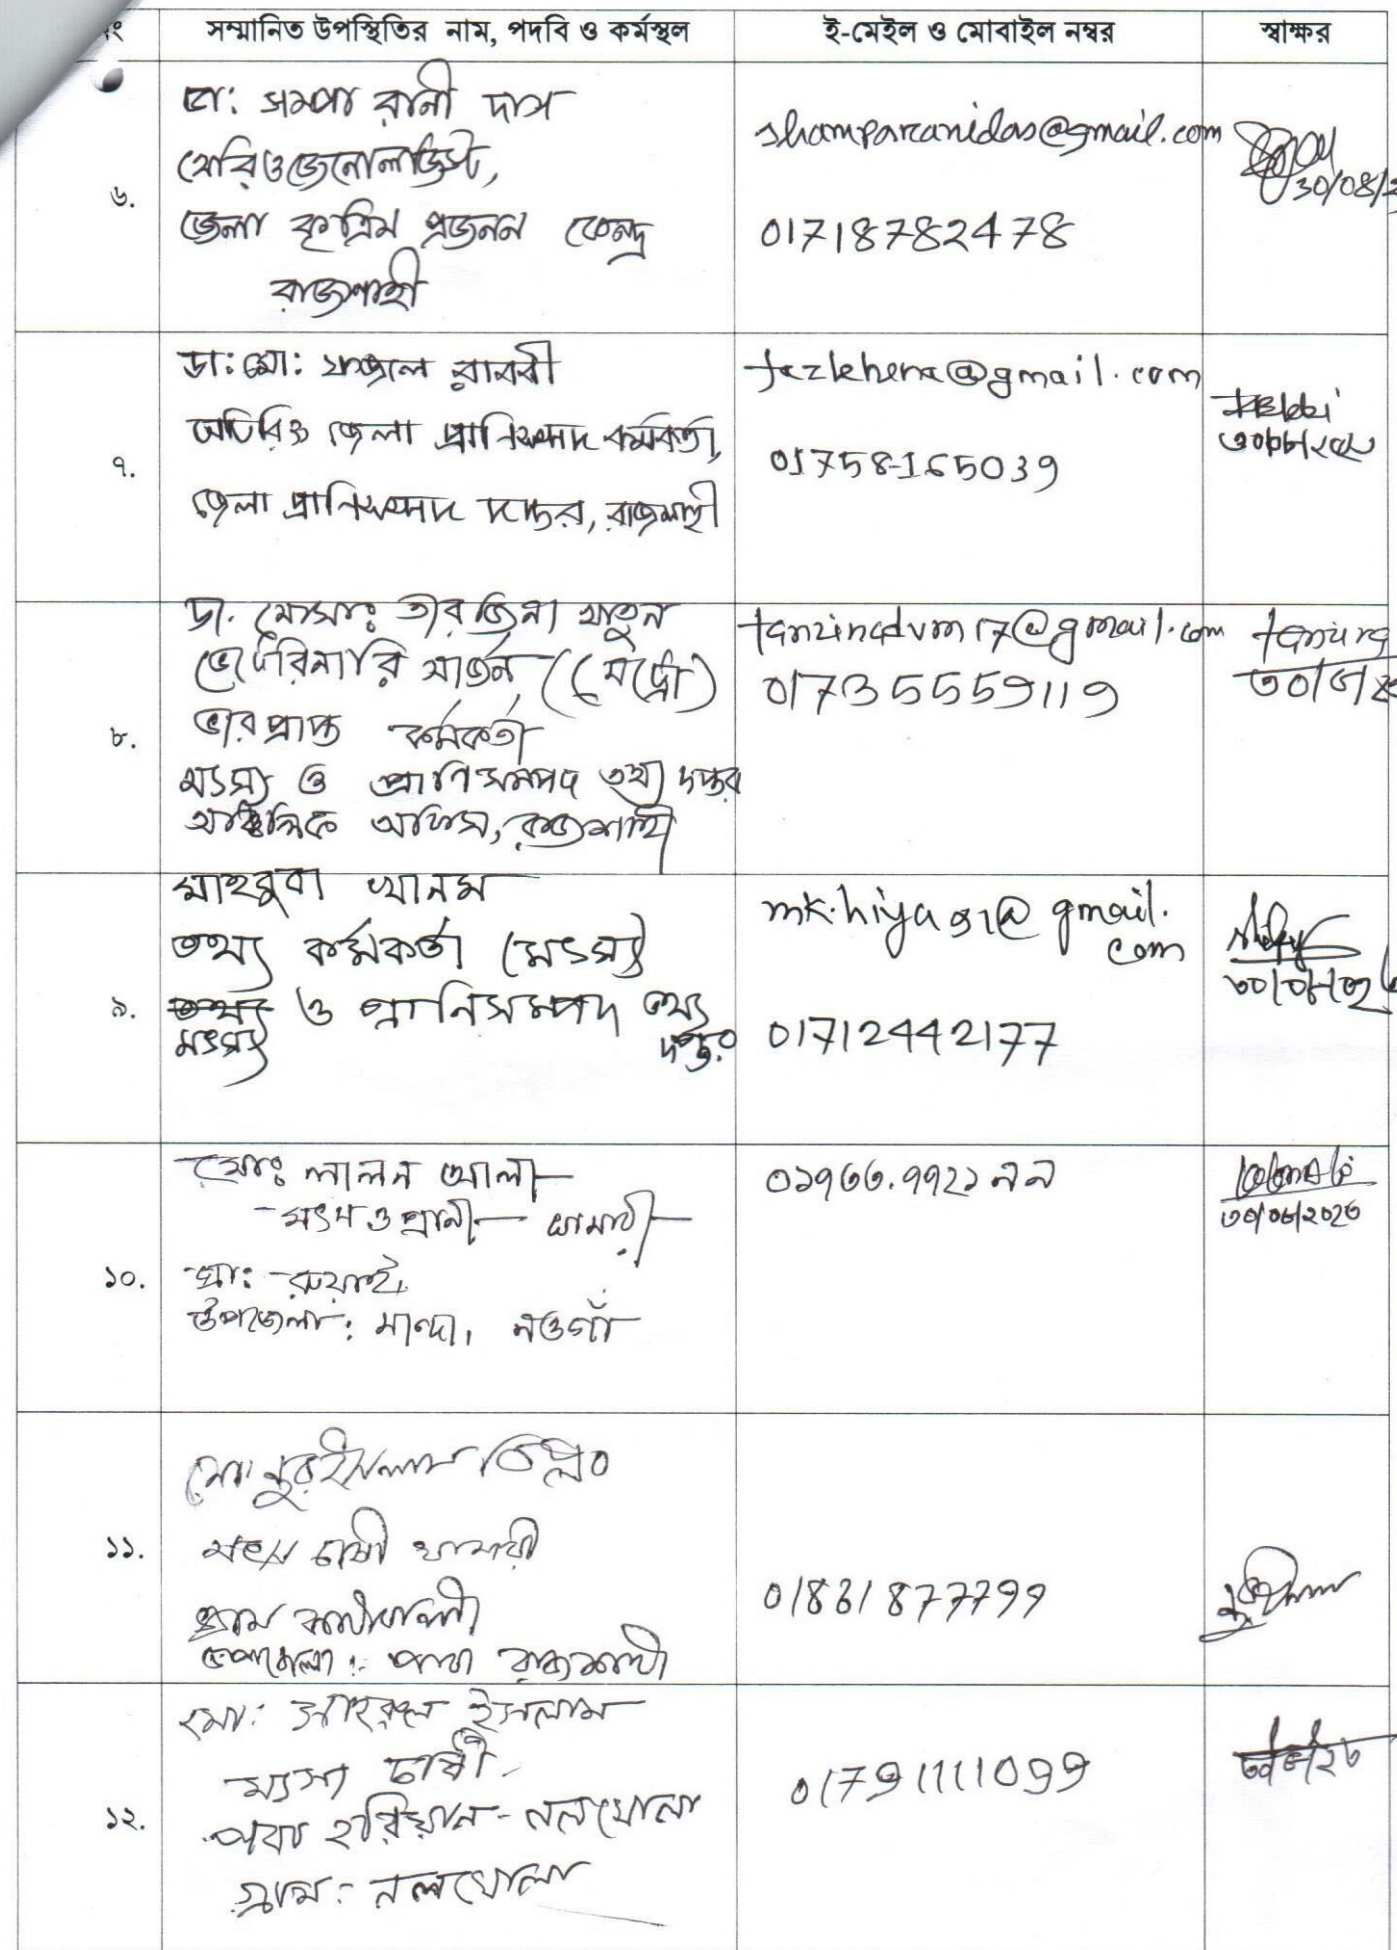 নং সম্মানিত উপস্থিতির নাম, পদবি ও কর্মস্থল ই-মেইল ও মোবাইল নম্বর স্বাক্ষর
৬.
ডা: সম্পা রানী দাস
থেরিওজেনোলজিস্ট,
জেলা কৃত্রিম প্রজনন কেন্দ্র
রাজশাহী
shamparanidas@gmail.com
01718782478
30/08/2
৭.
ডা: মো: ফজলে রাব্বী
অতিরিক্ত জেলা প্রাণিসম্পদ কর্মকর্তা,
জেলা প্রাণিসম্পদ দপ্তর, রাজশাহী
@gmail.com
01758-165039
৮.
ডা. মোসাঃ তানজিনা খাতুন
ভেটেরিনারি সার্জন, (মেট্রো)
ভারপ্রাপ্ত কর্মকর্তা
মৎস্য ও প্রাণিসম্পদ তথ্য দপ্তর
আঞ্চলিক অফিস, রাজশাহী
tanzinadvm17@gmail.com
01735559119
৯.
মাহবুবা খানম
তথ্য কর্মকর্তা (মৎস্য)
মৎস্য ও প্রাণিসম্পদ তথ্য
দপ্তর
mk.hiya91@gmail.
com
01712442177
১০.
মোঃ লালন আলী
মৎস ও প্রানী খামারী
গ্রা:
উপজেলা: মান্দা, নওগাঁ
০১৭৬৬.৭৭২১৯৯
৩০/০৮/২০২৩
১১.
মো নুর ইসলাম
মৎস চাষী খামারী
গ্রাম
উপজেলা: পবা রাজশাহী
01831877799
১২.
মো: ইসলাম
মৎস্য চাষী
পবা হরিয়ান - নলখোলা
গ্রাম: নলখোলা
01791111099